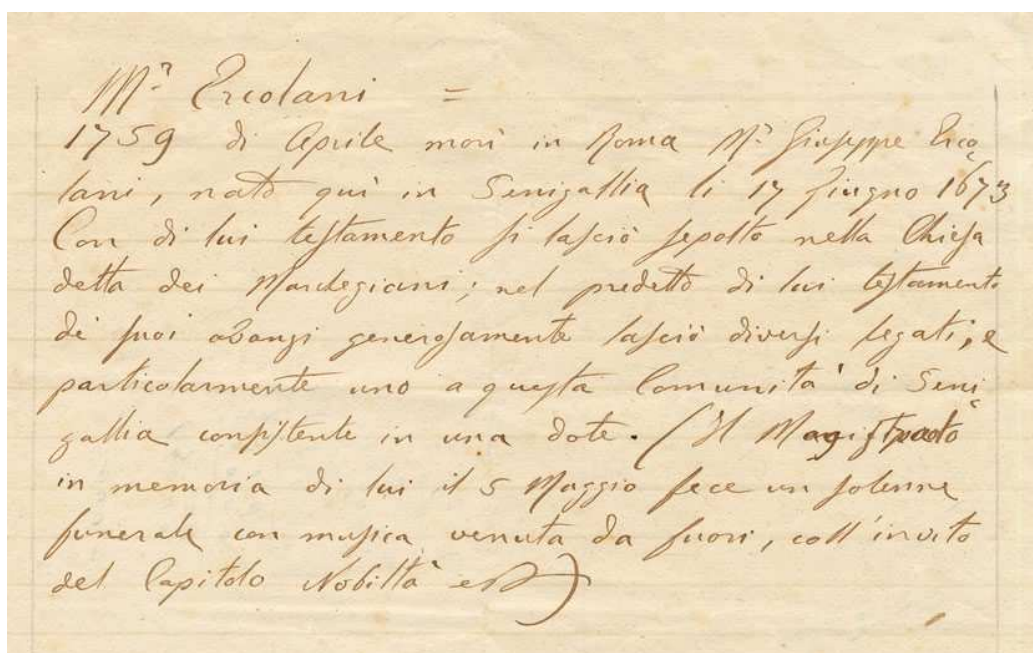 M.r Ercolani =
1759 di Aprile morì in Roma M.r Giuseppe Erco=
lani, nato quì in Senigallia li 17 Giugno 1673
Con di lui testamento si lasciò sepolto nella Chiesa
detta dei Marchegiani; nel predetto di lui testamento
de suoi avanzi generosamente lasciò diversi legati, e
particolarmente uno a questa Comunità di Seni=
gallia consistente in una dote. (Il Magistrato
in memoria di lui il 5 Maggio fece un solenne
funerale con musica venuta da fuori, coll'invito
del Capitolo Nobiltà )